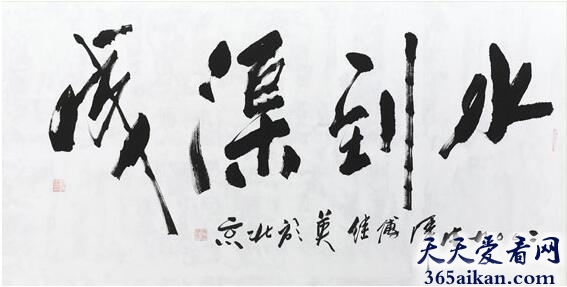 水到渠成
於北京
天天爱看网
365aikan.com